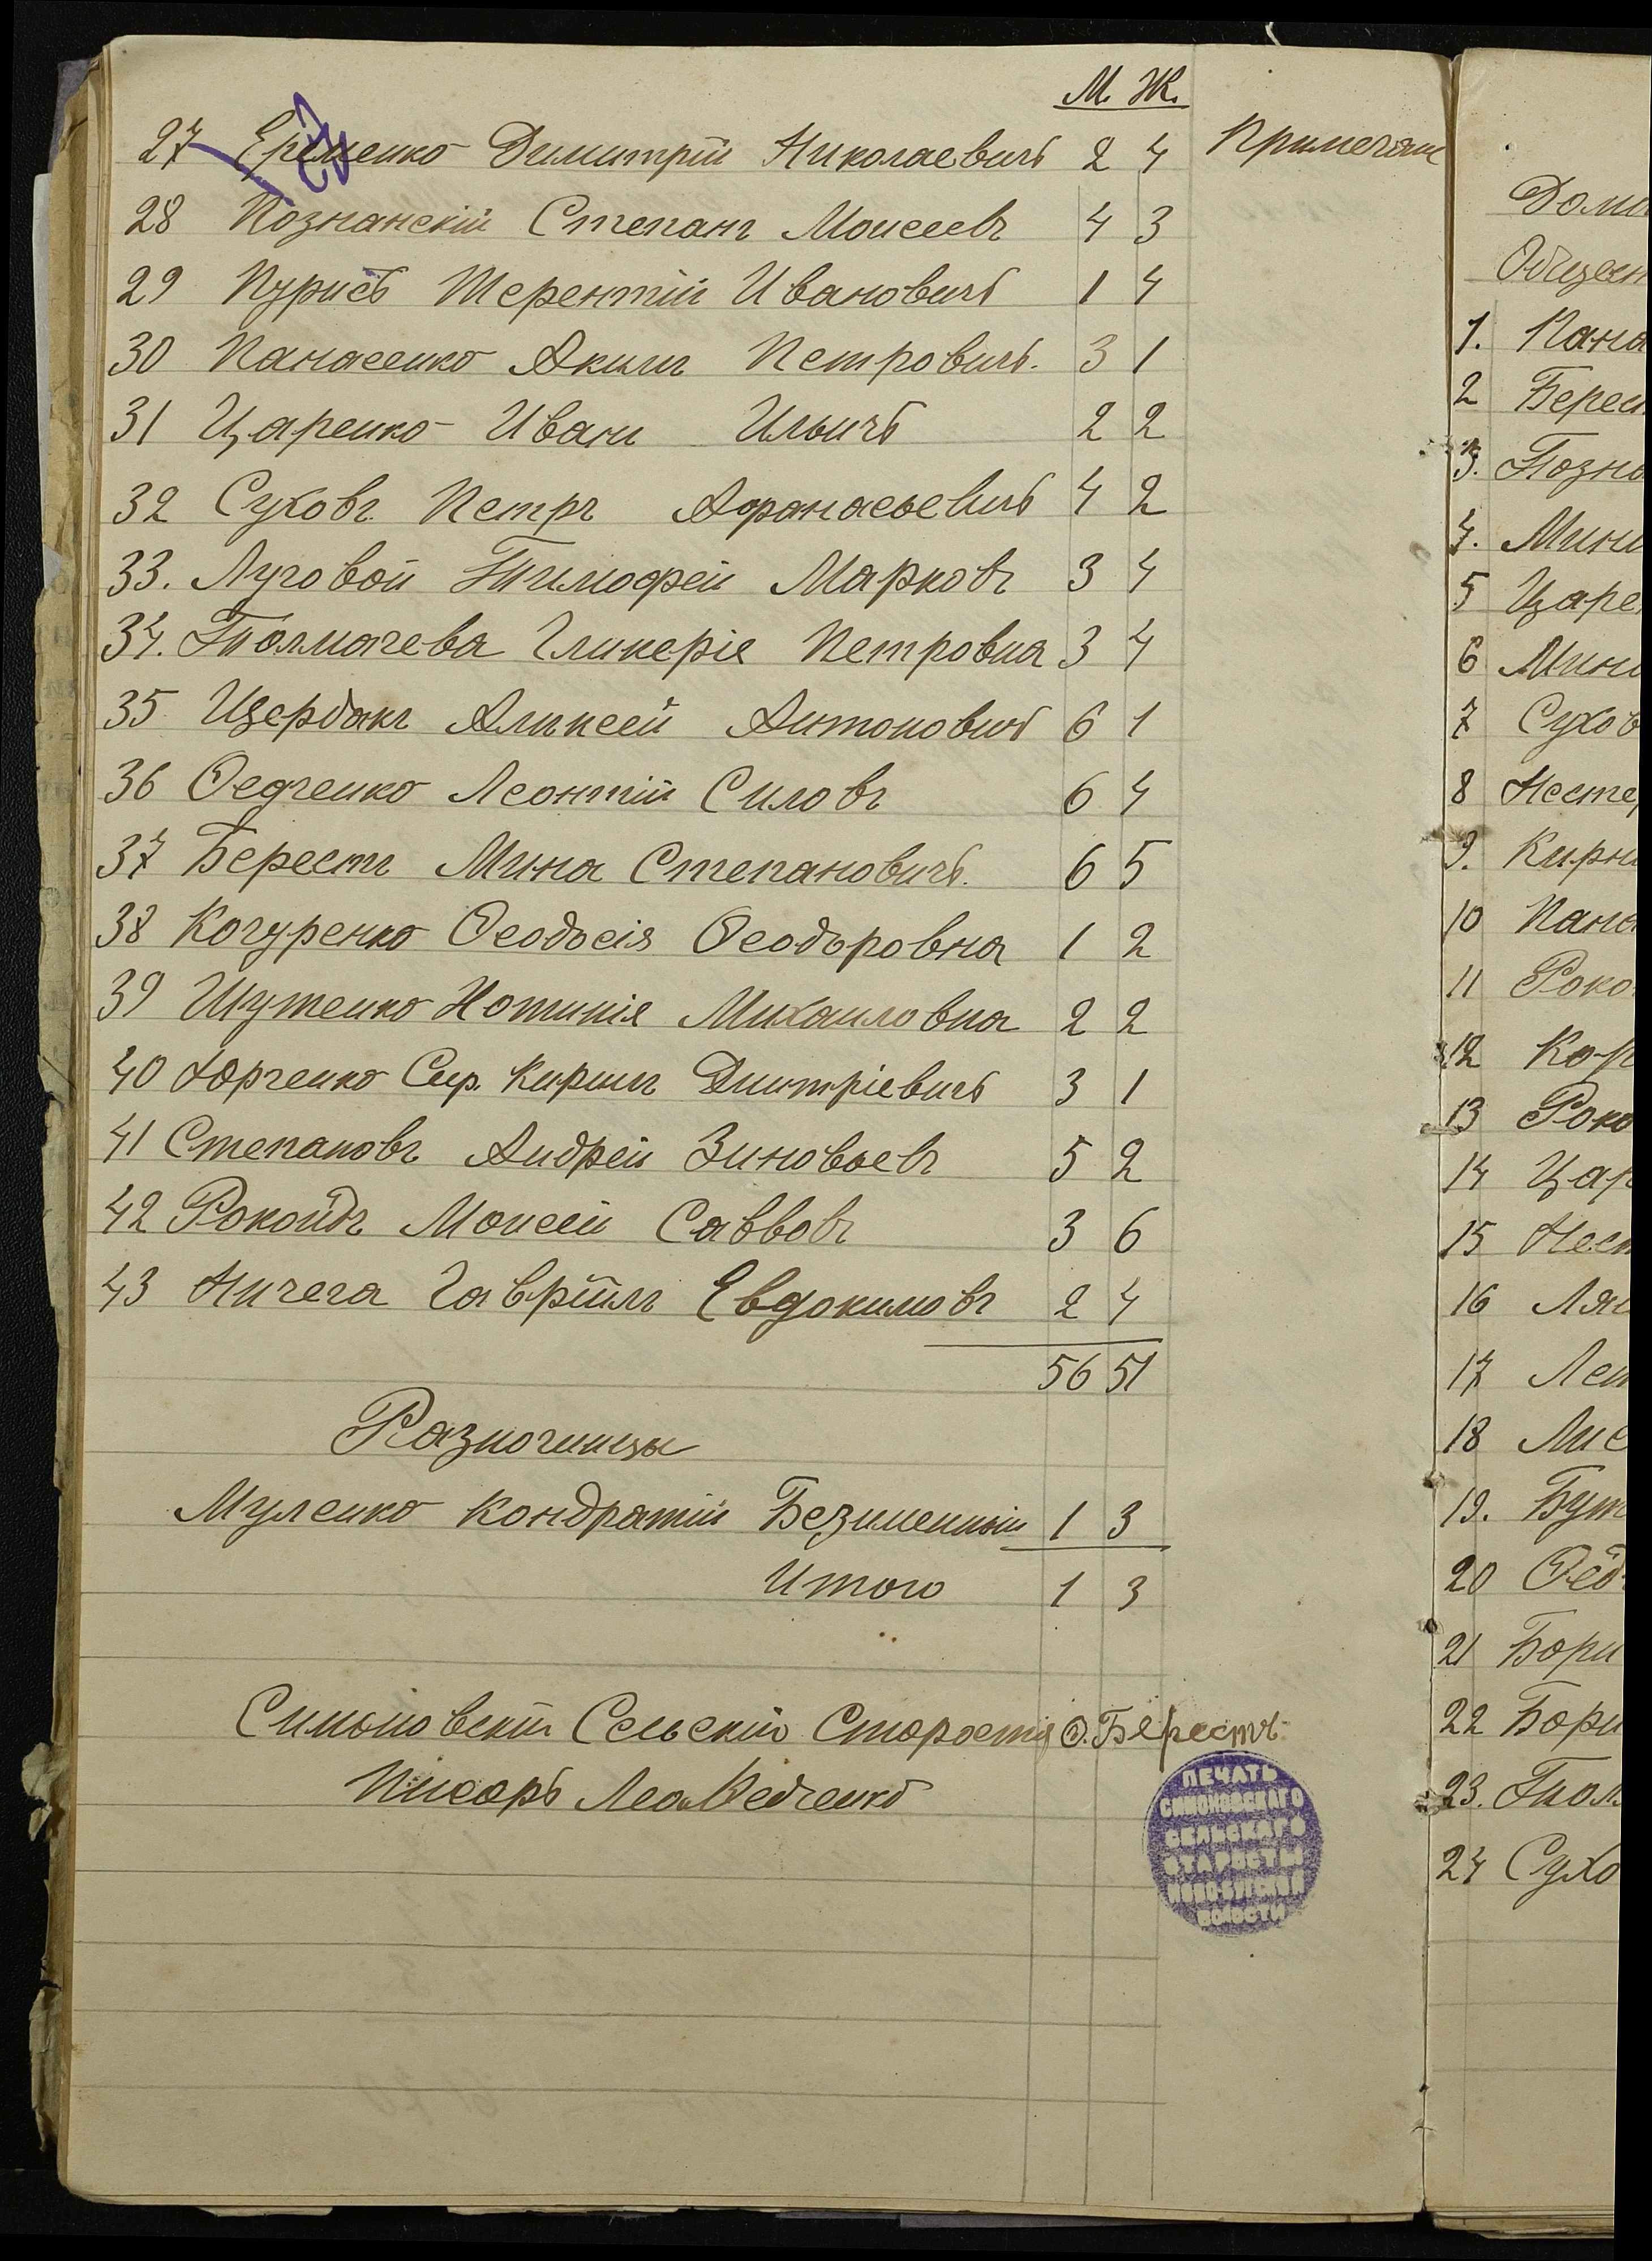 М. Ж.
27 Еременко Димитрій Николаевичъ 2 4 Примечан
28 Познанскій Степанъ Моисеевъ 4 3
29 Пурисъ Терентій Ивановичъ 1 4
30 Панасенко Акимъ Петровичъ. 3 1
31 Царенко Иванъ Ильичъ 2 2
32 Суховъ Петръ Афанасьевичъ 4 2
33. Луговой Тимофей Марковъ 3 4
34. Толмачева Гликерія Петровна 3 4
35 Щербакъ Алексей Антоновичъ 6 1
36 Ѳедченко Леонтій Силовъ 6 4
37 Берестъ Мина Степановичъ. 6 5
38 Кочуренко Ѳеодосія Ѳеодоровна 1 2
39 Шутенко Михаиловна 2 2
40 Юрченко Сир. Кирилъ Дмитріевичъ 3 1
41 Степановъ Андрей Зиновьевъ 5 2
42 Рокоидъ Моисей Саввовъ 3 6
43 Ничега Гавріилъ Евдокимовъ 2 4
56 51
Разночинцы
Муленко Кондратій Безименный 1 3
Итого 1 3
Симоновскій Сельскій Староста Ѳ. Берестъ
Писарь Леон Ѳедченко
ПЕЧАТЬ
СИМОНОВСКАГО
СЕЛЬСКАГО
СТАРОСТЫ
ВОЛОСТИ
Домо
Общест
1. Пана
2 Берес
3. Позна
4. Мини
5 Царе
6 Мини
7 Сухов
8 Несте
9. Кирн
10 Пана
11 Роко
12 Кор
13 Роко
14 Цар
15 Нест
16 Ля
17 Лет
18 Лис
19. Бут
20 Ѳед
21 Бори
22 Бори
23. Тол
24 Сухо